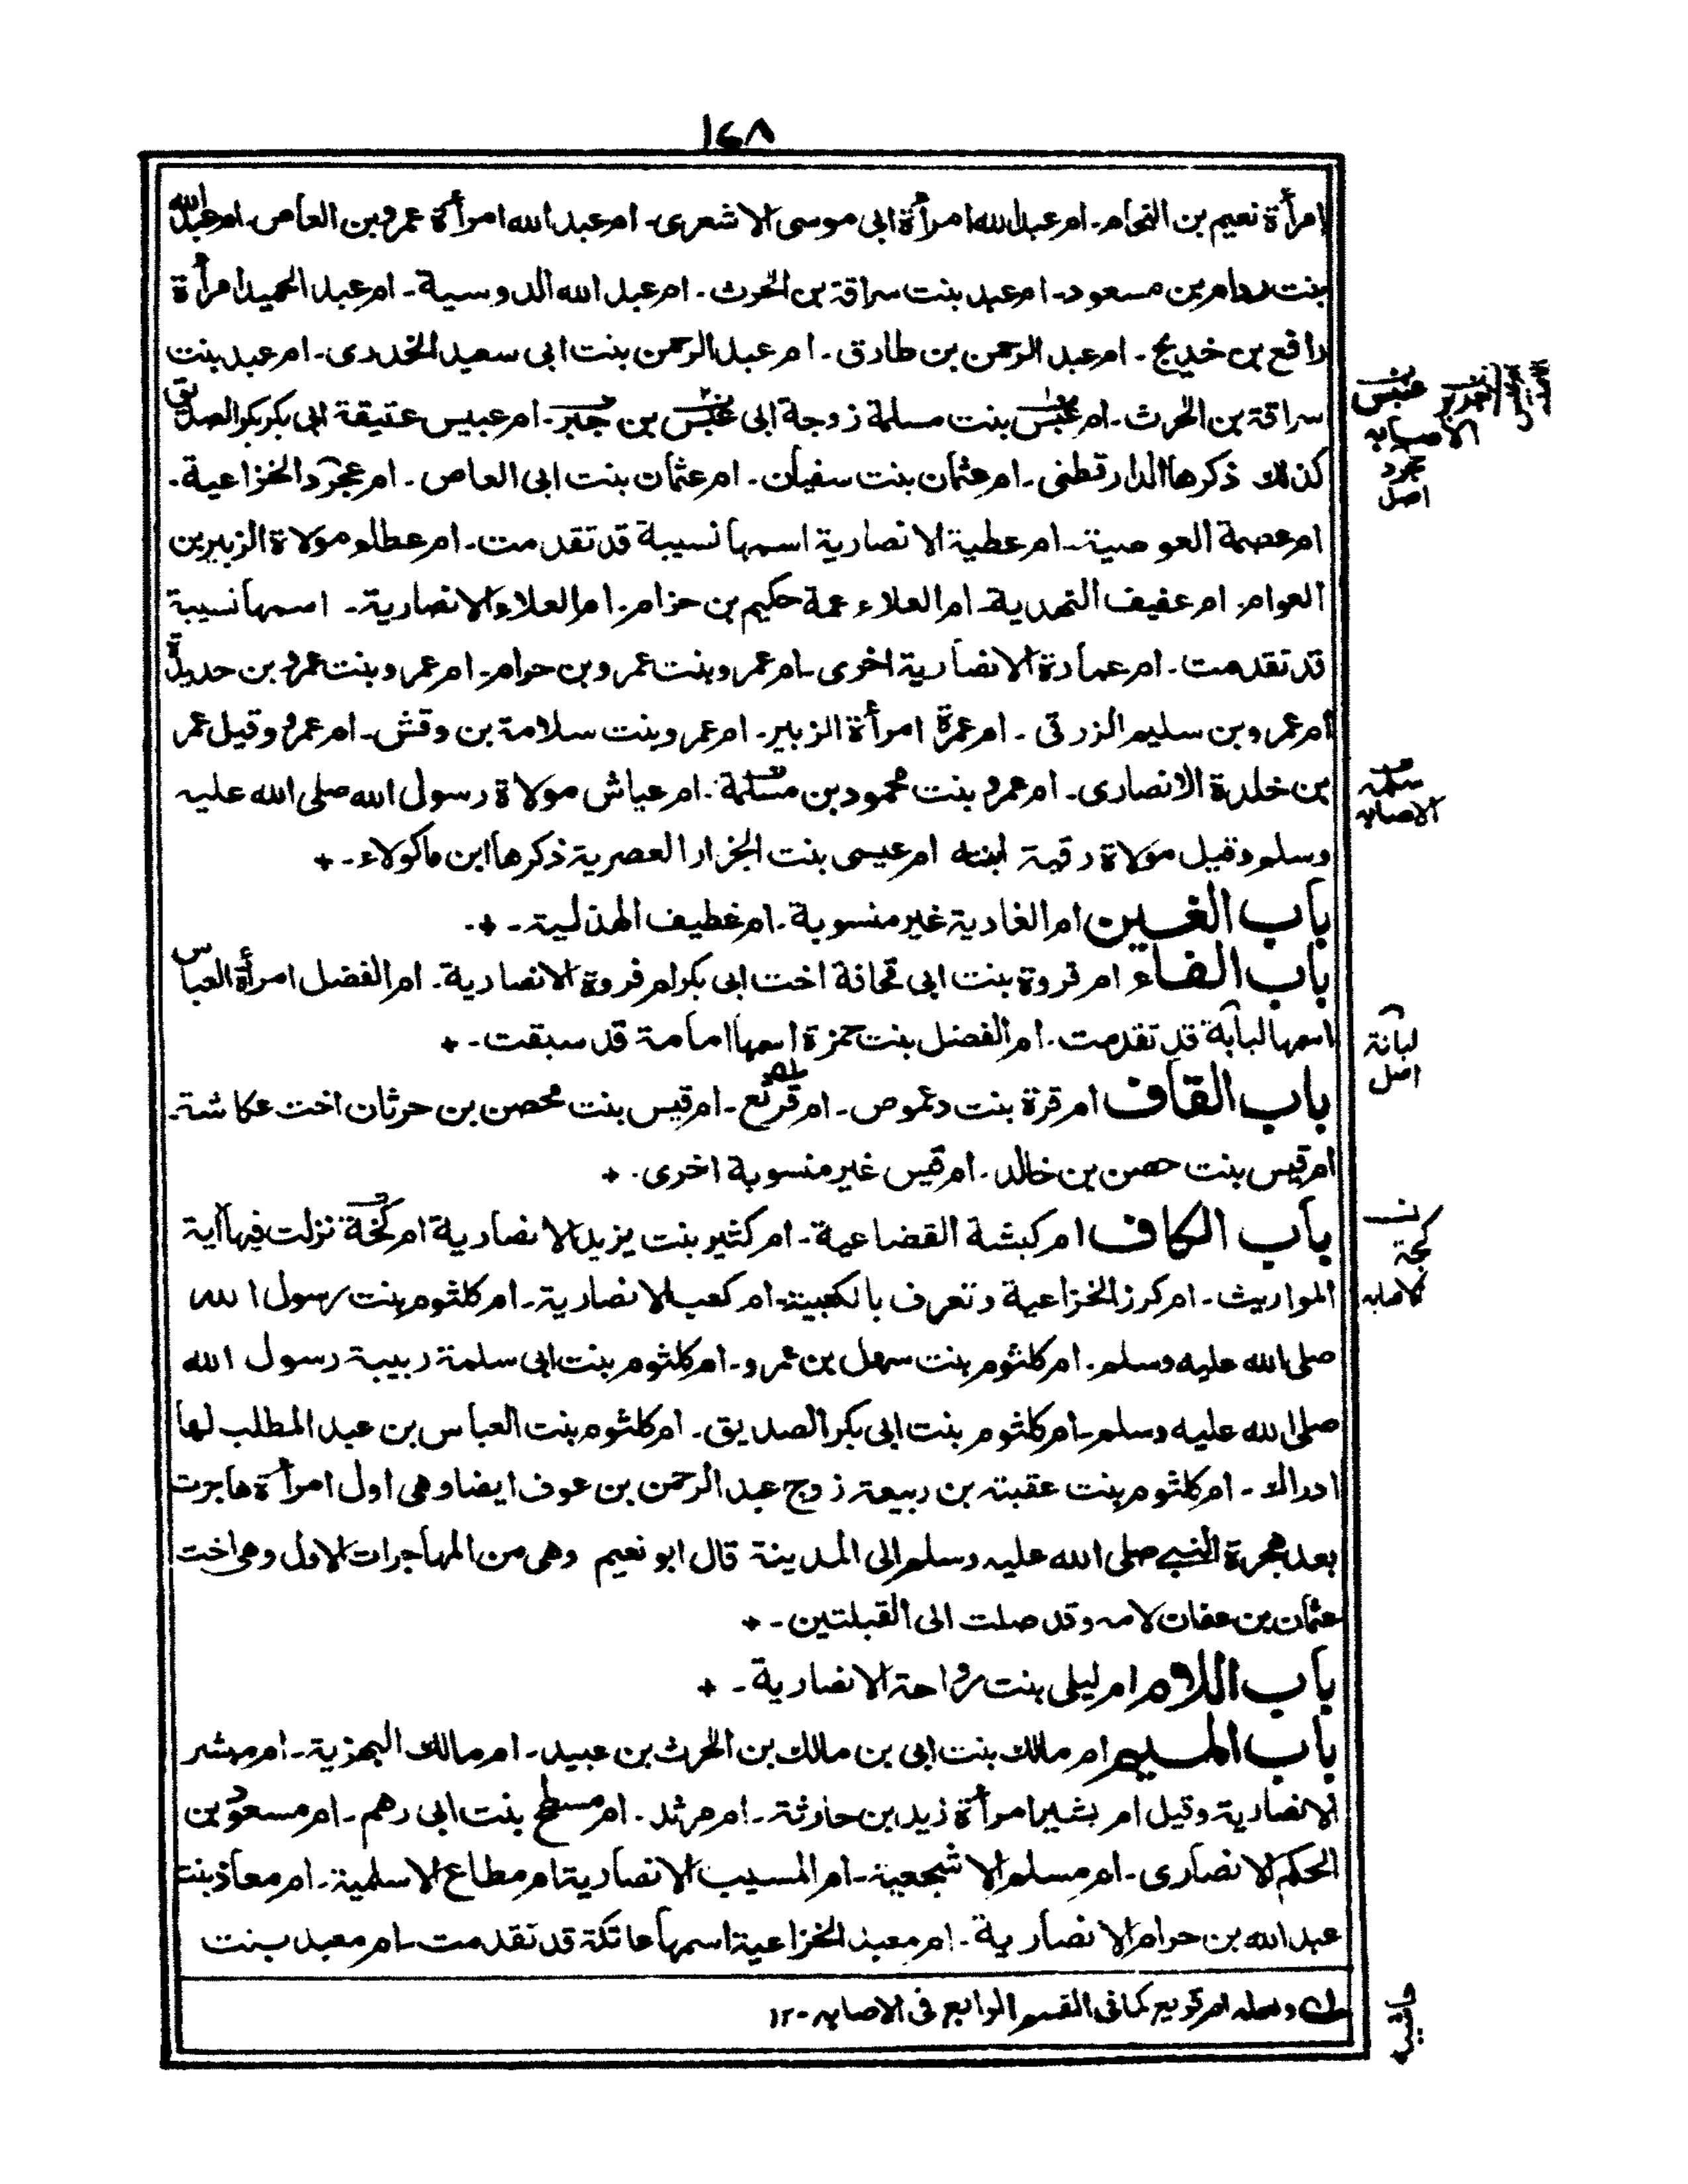 ١٦٨
امرأة نعيم بن النحام۔ ام عبد الله امرأة ابى موسى الاشعرى۔ ام عبد الله امرأة عمرو بن العاص۔ ام عبد الله
بنت دوام بن مسعود۔ ام عبد بنت سراقة بن الحرث۔ ام عبد الله الدوسية۔ ام عبد الحميد امرأة
رافع بن خديج۔ ام عبد الرحمن بن طارق۔ ام عبد الرحمن بنت ابى سعيد الخدرى۔ ام عبد بنت
سراقة بن الحرث۔ ام عبس بنت مسلمة زوجة ابى عبس بن جبر۔ ام عبيس عتيقة ابى بكر الصديق
كذلك ذكرها الدارقطنى۔ ام عثمان بنت سفيان۔ ام عثمان بنت ابى العاص۔ ام عجرد الخزاعية۔
ام عصمة العوصية۔ ام عطية الانصارية اسمها نسيبة قد تقدمت۔ ام عطاء مولاة الزبير بن
العوام۔ ام عفيف النهدية۔ ام العلاء عمة حكيم بن حزام۔ ام العلاء الانصارية۔ اسمها نسيبة
قد تقدمت۔ ام عمارة الانصارية اخرى۔ ام عمرو بنت عمرو بن حوام۔ ام عمرو بنت عمرو بن حديدة
ام عمرو بن سليم الزرقى۔ ام عمرة امرأة الزبير۔ ام عمرو بنت سلامة بن وقش۔ ام عمرو وقيل عمر
بن خلدة الانصارى۔ ام عمرو بنت محمود بن مسلمة۔ ام عياش مولاة رسول الله صلى الله عليه
وسلم وقيل مولاة رقية ابنته ام عيسى بنت الجزار العصرية ذكرها ابن ماكولاء۔ +
باب الغين ام الغادية غير منسوبة۔ ام غطيف الهذلية۔ +
باب الفاء ام فروة بنت ابى قحافة اخت ابى بكر ام فروة الانصارية۔ ام الفضل امرأة العباس
اسمها لبابة قد تقدمت۔ ام الفضل بنت حمزة اسمها امامة قد سبقت۔ +
باب القاف ام قرة بنت دعموص۔ ام قرثع۔ ام قيس بنت محصن بن حرثان اخت عكاشة۔
ام قيس بنت حصن بن خالد۔ ام قيس غير منسوبة اخرى۔ +
باب الكاف ام كبشة القضاعية۔ ام كثير بنت يزيد الانصارية ام كحة نزلت فيها آية
المواريث۔ ام كرز الخزاعية وتعرف بالكعبية۔ ام كعب الانصارية۔ ام كلثوم بنت رسول الله
صلى الله عليه وسلم۔ ام كلثوم بنت سهل بن عمرو۔ ام كلثوم بنت ابى سلمة ربيبة رسول الله
صلى الله عليه وسلم۔ ام كلثوم بنت ابى بكر الصديق۔ ام كلثوم بنت العباس بن عبد المطلب لها
ادراك۔ ام كلثوم بنت عقبة بن ربيعة زوج عبد الرحمن بن عوف ايضا وهى اول امرأة هاجرت
بعد هجرة النبي صلى الله عليه وسلم الى المدينة قال ابو نعيم وهى من المهاجرات الاول وهى اخت
عثمان بن عفان لامه وقد صلت الى القبلتين۔ +
باب اللام ام ليلى بنت رواحة الانصارية۔ +
باب الميم ام مالك بنت ابى بن مالك بن الحرث بن عبيد۔ ام مالك البهزية۔ ام مبشر
الانصارية وقيل ام بشير امرأة زيد ابن حارثة۔ ام مرثد۔ ام مسطح بنت ابى رهم۔ ام مسعود بن
الحكم الانصارى۔ ام مسلم الاشجعية۔ ام المسيب الانصارية ام مطاع الاسلمية۔ ام معاذ بنت
عبد الله بن حرام الانصارية۔ ام معبد الخزاعية اسمها عاتكة قد تقدمت۔ ام معبد بنت
ولعله ام قريع كما فى القسم الرابع فى الاصابه ۔ ١٢
عبس
الاصابه
عجرد
اصل
سلمه
الاصابه
لبانة
اصل
كجة
الاصابه
حاشيه